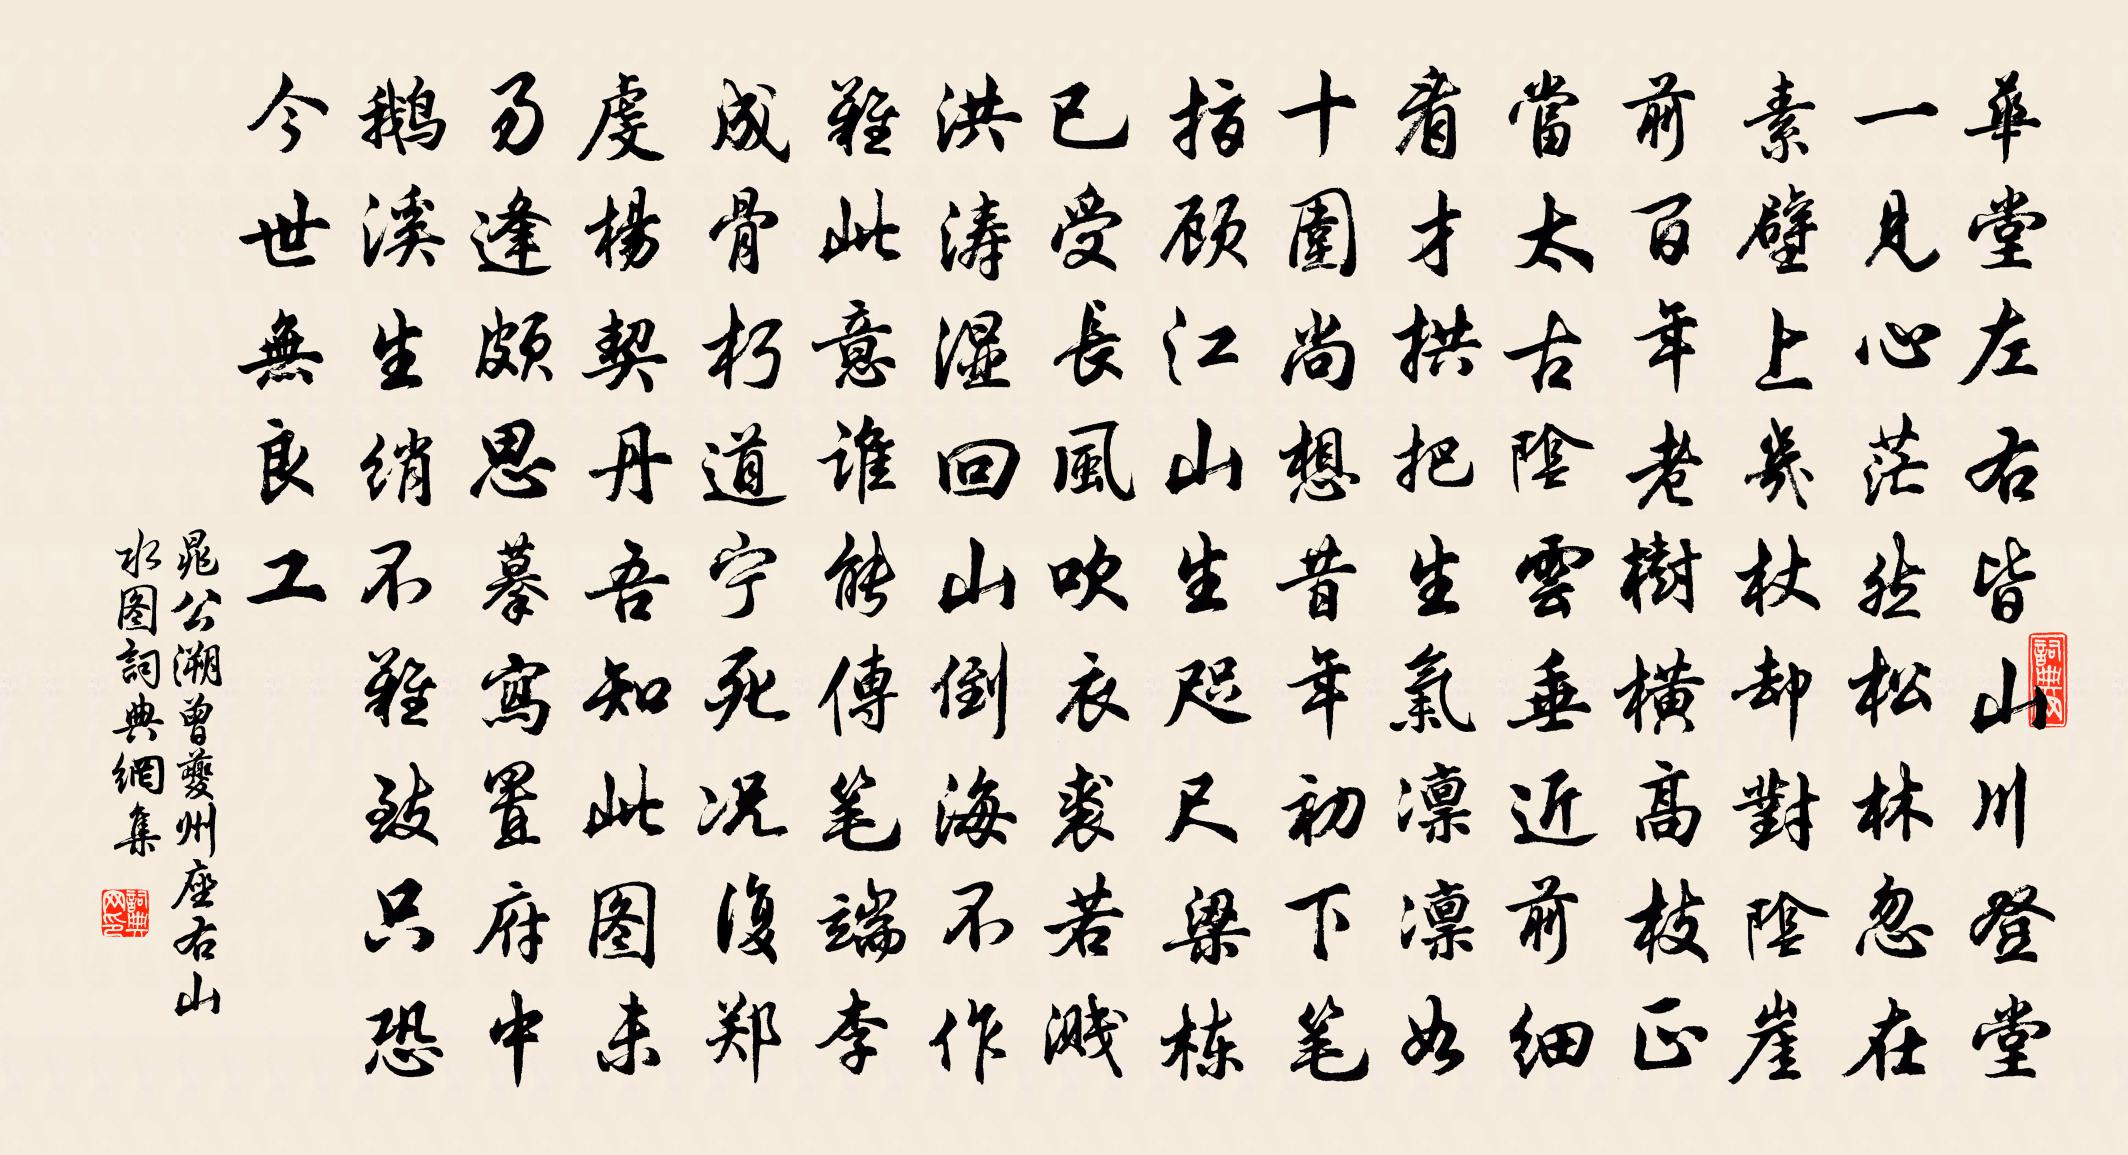 華堂左右皆山川登堂
一見心茫然松林忽在
素壁上幾杖却對陰崖
前百年老樹橫高枝正
當太古陰雲垂近前細
看才拱把生氣凛凛如
十圍尚想昔年初下笔
指顾江山生咫尺梁栋
已受長風吹衣裘若溅
洪涛湿回山倒海不作
難此意誰能傳笔端李
成骨朽道宁死况復郑
虔楊契丹吾知此图未
易逢頗思摹寫置府中
鹅溪生绡不難致只恐
今世無良工
晁公溯曾夔州座右山
水图詞典網集
詞典网
詞典网印